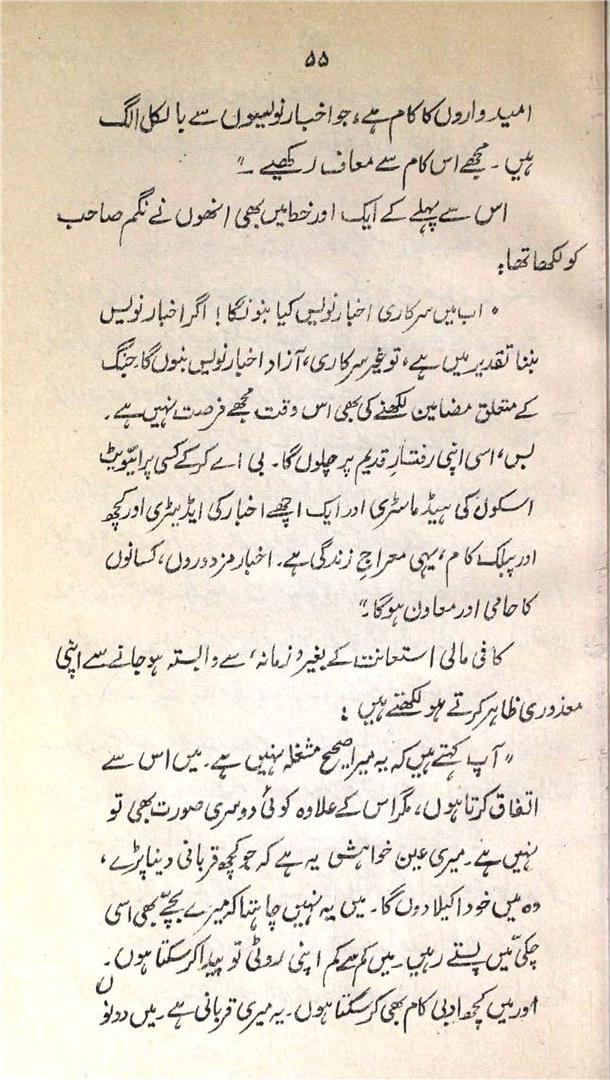 ۵۵
امیدواروں کا کام ہے، جو اخبار نویسوں سے بالکل الگ
ہیں ۔ مجھے اس کام سے معاف رکھیے ۔"
اس سے پہلے کے ایک اور خط میں بھی انھوں نے نگم صاحب
کو لکھا تھا:
" اب میں سرکاری اخبار نویس کیا بنوں گا! اگر اخبار نویس
بننا تقدیر میں ہے، تو غیر سرکاری، آزاد اخبار نویس بنوں گا۔ جنگ
کے متعلق مضامین لکھنے کی بھی اس وقت مجھے فرصت نہیں ہے ۔
بس، اسی اپنی رفتارِ قدیم پر چلوں گا۔ بی اے کر کے کسی پرائیویٹ
اسکول کی ہیڈ ماسٹری اور ایک اچھے اخبار کی ایڈیٹری اور کچھ
اور پبلک کام، یہی معراجِ زندگی ہے۔ اخبار مزدوروں، کسانوں
کا حامی اور معاون ہوگا۔"
کافی مالی استعانت کے بغیر 'زمانہ' سے وابستہ ہو جانے سے اپنی
معذوری ظاہر کرتے ہو لکھتے ہیں :
" آپ کہتے ہیں کہ یہ میرا صحیح مشغلہ نہیں ہے ۔ میں اس سے
اتفاق کرتا ہوں، مگر اس کے علاوہ کوئی دوسری صورت بھی تو
نہیں ہے۔ میری عین خواہش یہ ہے کہ جو کچھ قربانی دینا پڑے ،
وہ میں خود اکیلا دوں گا۔ میں یہ نہیں چاہتا کہ میرے بچے بھی اسی
چکی میں پستے رہیں ۔ میں کم سے کم اپنی روٹی تو پیدا کر سکتا ہوں ۔
اور میں کچھ ادبی کام بھی کر سکتا ہوں۔ یہ میری قربانی ہے ۔ میں دونوں